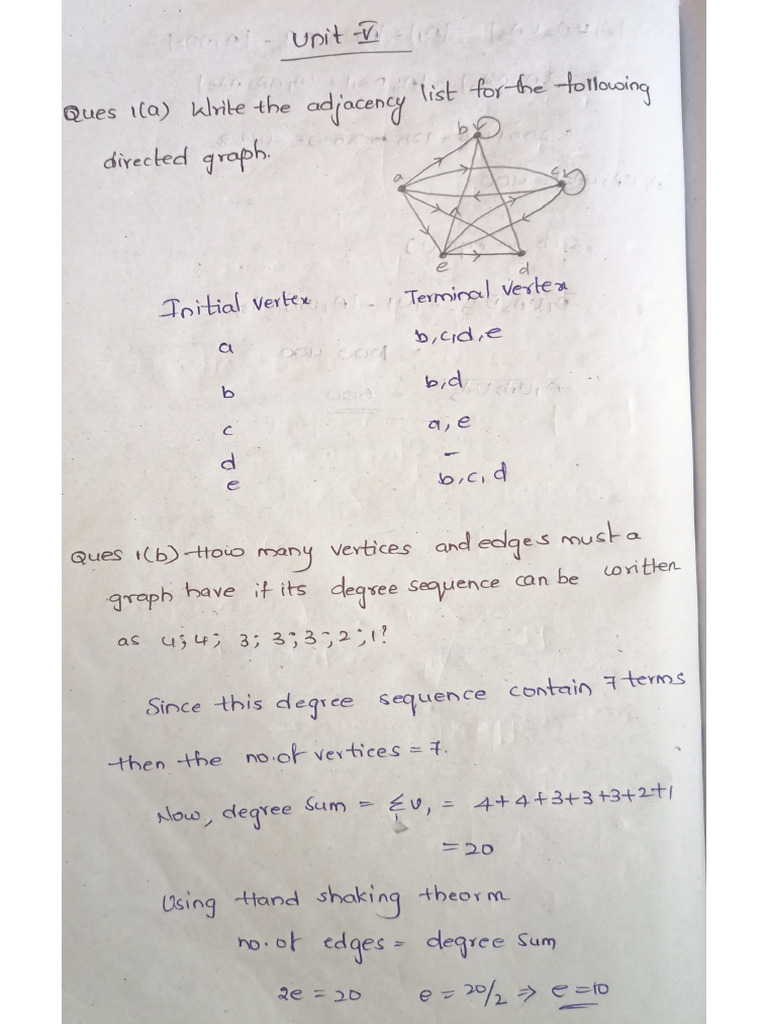 Unit -V.
Ques 1(a) Write the adjacency list for the following
directed graph.
b
a
c
e
d
Initial vertex Terminal vertex
a b,c,d,e
b b,d
c a, e
d -
e b,c,d
Ques 1(b) How many vertices and edges must a
graph have if its degree sequence can be written
as 4; 4; 3; 3; 3; 2; 1?
Since this degree sequence contain 7 terms
then the no.of vertices = 7.
Now, degree sum = Σv, = 4+4+3+3+3+2+1
=20
Using Hand shaking theorm
no.of edges = degree sum
2e = 20 e = 20/2 ⇒ e=10